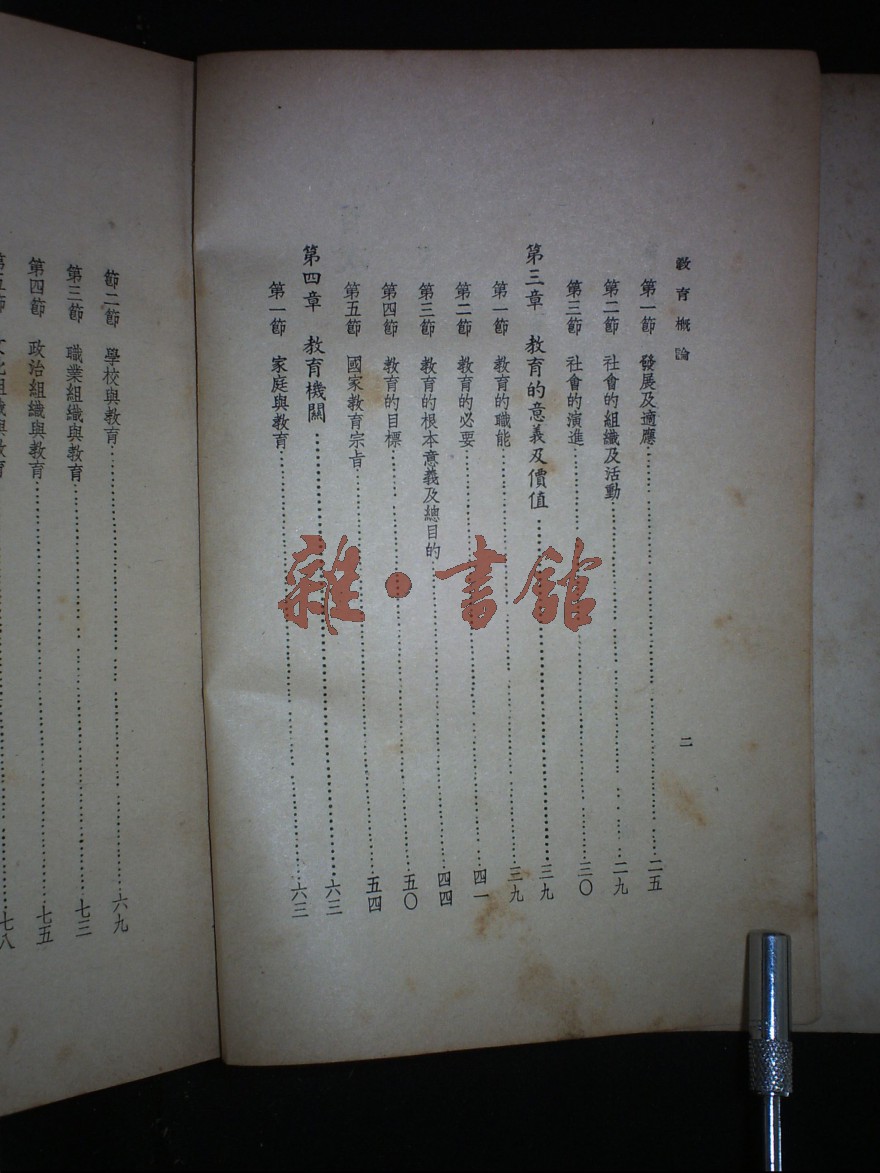 教育概論
二
第一節 發展及適應……二五
第二節 社會的組織及活動……二九
第三節 社會的演進……三〇
第三章 教育的意義及價值……三九
第一節 教育的職能……三九
第二節 教育的必要……四一
第三節 教育的根本意義及總目的……四四
第四節 教育的目標……五〇
第五節 國家教育宗旨……五四
第四章 教育機關……六三
第一節 家庭與教育……六三
節二節 學校與教育……六九
第三節 職業組織與教育……七三
第四節 政治組織與教育……七五
第五節 文化組織與教育……七八
雜·書館